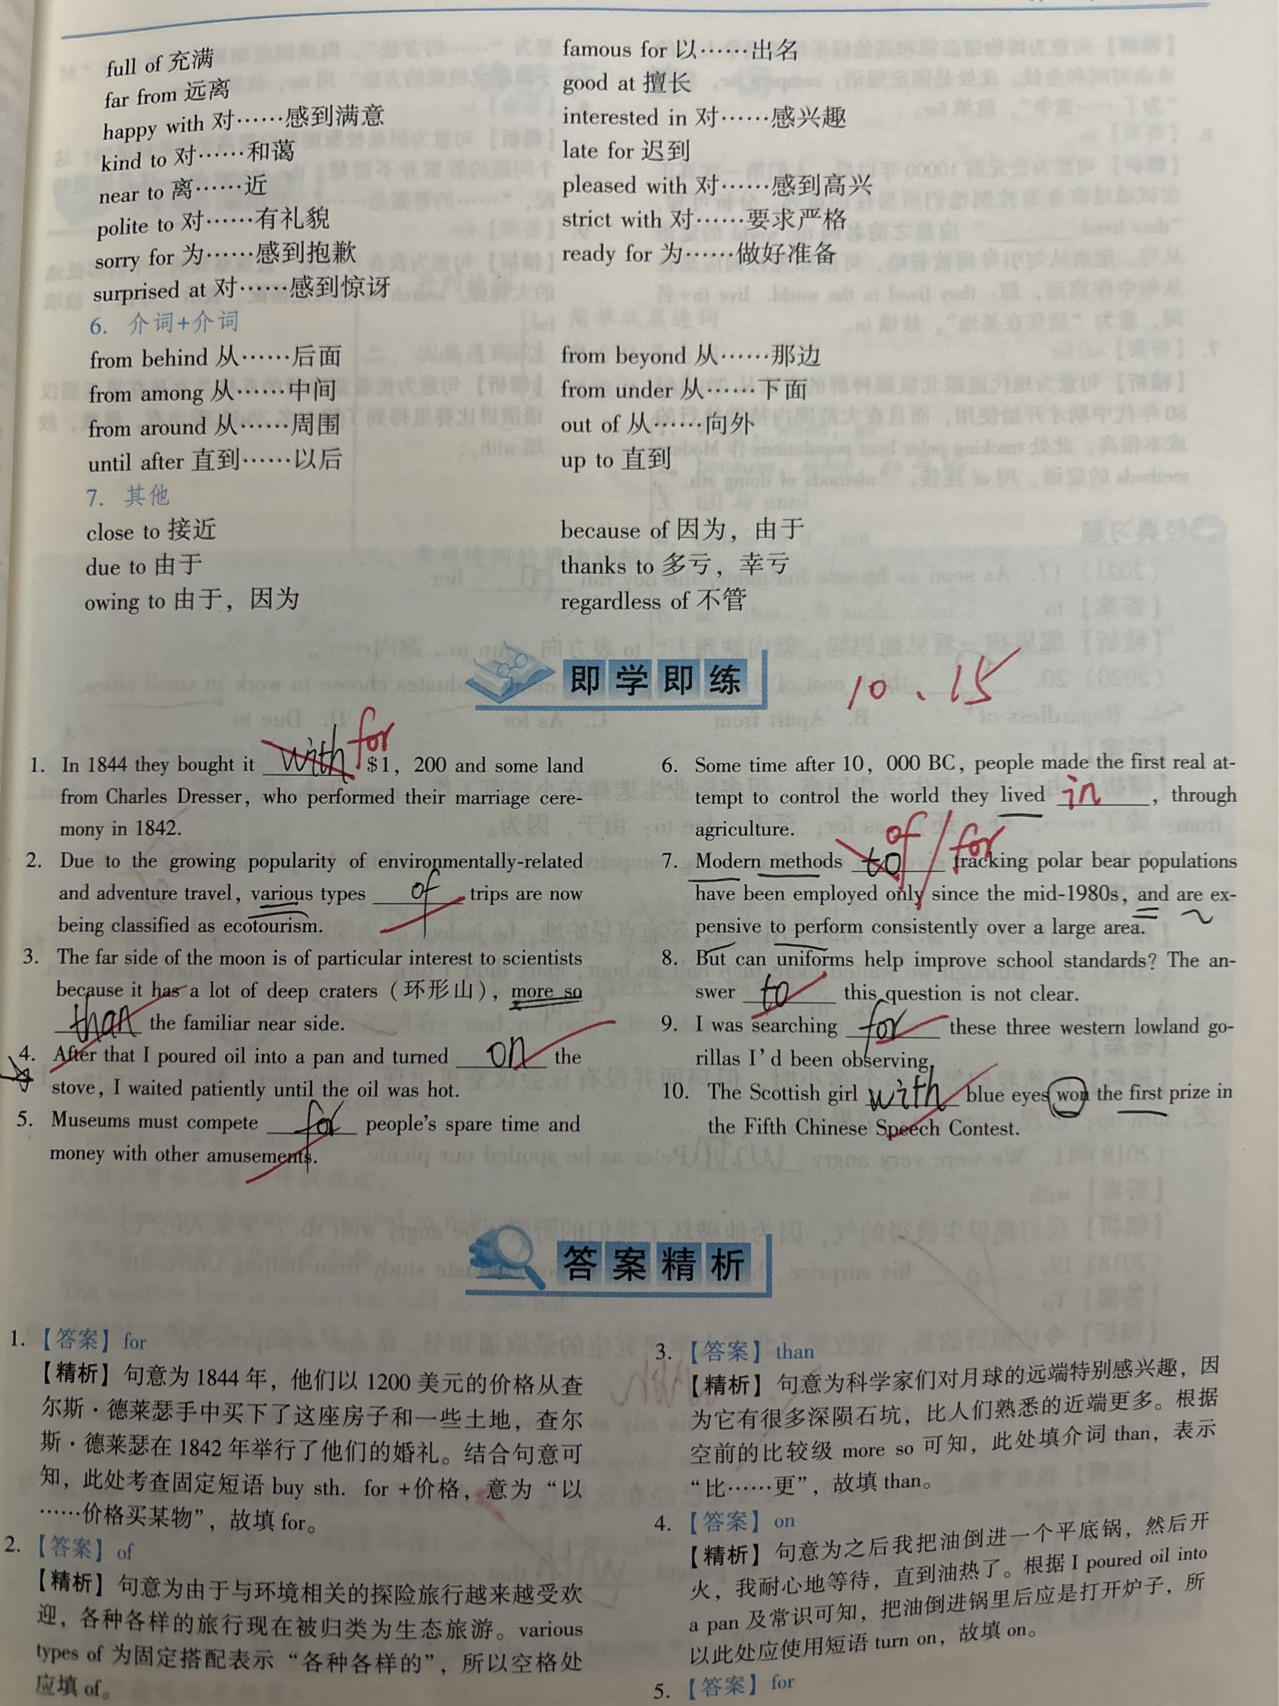 full of 充满
far from 远离
happy with 对……感到满意
kind to 对……和蔼
near to 离……近
polite to 对……有礼貌
sorry for 为……感到抱歉
surprised at 对……感到惊讶
famous for 以……出名
good at 擅长
interested in 对……感兴趣
late for 迟到
pleased with 对……感到高兴
strict with 对……要求严格
ready for 为……做好准备
6. 介词+介词
from behind 从……后面
from among 从……中间
from around 从……周围
until after 直到……以后
from beyond 从……那边
from under 从……下面
out of 从……向外
up to 直到
7. 其他
close to 接近
due to 由于
owing to 由于，因为
because of 因为，由于
thanks to 多亏，幸亏
regardless of 不管
即学即练
10、15
1. In 1844 they bought it with for $1，200 and some land
from Charles Dresser, who performed their marriage cere-
mony in 1842.
2. Due to the growing popularity of environmentally-related
and adventure travel, various types of trips are now
being classified as ecotourism.
3. The far side of the moon is of particular interest to scientists
because it has a lot of deep craters（环形山）, more so
than the familiar near side.
4. After that I poured oil into a pan and turned on the
stove, I waited patiently until the oil was hot.
5. Museums must compete for people's spare time and
money with other amusements.
6. Some time after 10，000 BC, people made the first real at-
tempt to control the world they lived in , through
agriculture.
7. Modern methods to of/for tracking polar bear populations
have been employed only since the mid-1980s, and are ex-
pensive to perform consistently over a large area.
8. But can uniforms help improve school standards? The an-
swer to this question is not clear.
9. I was searching for these three western lowland go-
rillas I'd been observing.
10. The Scottish girl with blue eyes won the first prize in
the Fifth Chinese Speech Contest.
答案精析
1. 【答案】for
【精析】句意为 1844 年，他们以 1200 美元的价格从查
尔斯·德莱瑟手中买下了这座房子和一些土地，查尔
斯·德莱瑟在 1842 年举行了他们的婚礼。结合句意可
知，此处考查固定短语 buy sth. for +价格，意为“以
……价格买某物”，故填 for。
2. 【答案】of
【精析】句意为由于与环境相关的探险旅行越来越受欢
迎，各种各样的旅行现在被归类为生态旅游。various
types of 为固定搭配表示“各种各样的”，所以空格处
应填 of。
3. 【答案】than
【精析】句意为科学家们对月球的远端特别感兴趣，因
为它有很多深陨石坑，比人们熟悉的近端更多。根据
空前的比较级 more so 可知，此处填介词 than，表示
“比……更”，故填 than。
4. 【答案】on
【精析】句意为之后我把油倒进一个平底锅，然后开
火，我耐心地等待，直到油热了。根据 I poured oil into
a pan 及常识可知，把油倒进锅里后应是打开炉子，所
以此处应使用短语 turn on，故填 on。
5. 【答案】for